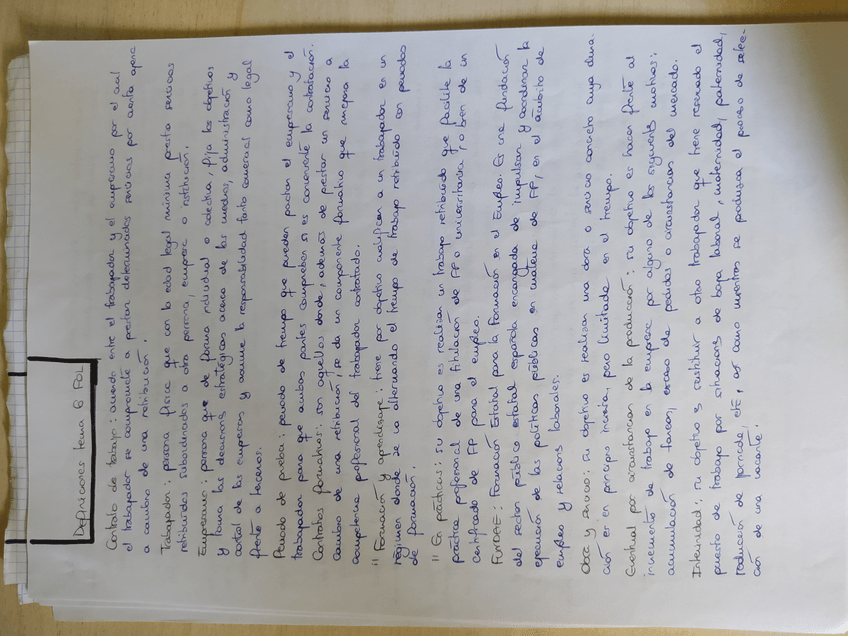 Definiciones tema 8 FOL
Contrato de trabajo: acuerdo entre el trabajador y el empresario por el cual
el trabajador se compromete a prestar determinados servicios por cuenta ajena
a cambio de una retribución.
Trabajador: persona física que con la edad legal mínima presta servicios
retribuidos subordinados a otra persona, empresa o institución.
Empresario: persona que de forma individual o colectiva, fija los objetivos
y toma las decisiones estratégicas acerca de las medios, administración y
control de las empresas y asume la responsabilidad tanto comercial como legal
frente a terceros.
Periodo de prueba: periodo de tiempo que pueden pactar el empresario y el
trabajador para que ambas partes comprueben si es conveniente la contratación.
Contratos formativos: son aquellos donde, además de prestar un servicio a
cambio de una retribución, se da un componente formativo que mejora la
competencia profesional del trabajador contratado.
" Formación y aprendizaje: tiene por objetivo cualificar a un trabajador en un
régimen donde se va alternando el tiempo de trabajo retribuido con periodos
de formación.
" En prácticas: su objetivo es realizar un trabajo retribuido que facilite la
práctica profesional de una titulación de FP o universitaria, o bien de un
certificado de FP para el empleo.
FUNDAE: Formación Estatal para la Formación en el Empleo. Es una fundación
del sector público estatal española encargada de impulsar y coordinar la
ejecución de las políticas públicas en materia de FP, en el ámbito de
empleo y relacions laborales.
Obra y servicio: su objetivo es realizar una obra o servicio concreto cuya dura-
ción es en principio incierta, pero limitada en el tiempo.
Eventual por circunstancias de la producción: su objetivo es hacer frente al
incremento de trabajo en la empresa por alguno de los siguients motivos:
acumulación de tareas, exceso de pedidos o circunstancias del mercado.
Interinidad: su objetivo es sustituir a otro trabajador que tiene reservado el
puesto de trabajo por situaciones de baja laboral, maternidad, paternidad,
reducción de jornada, etc, así como mientras se produzca el proceso de selec-
ción de una vacante.